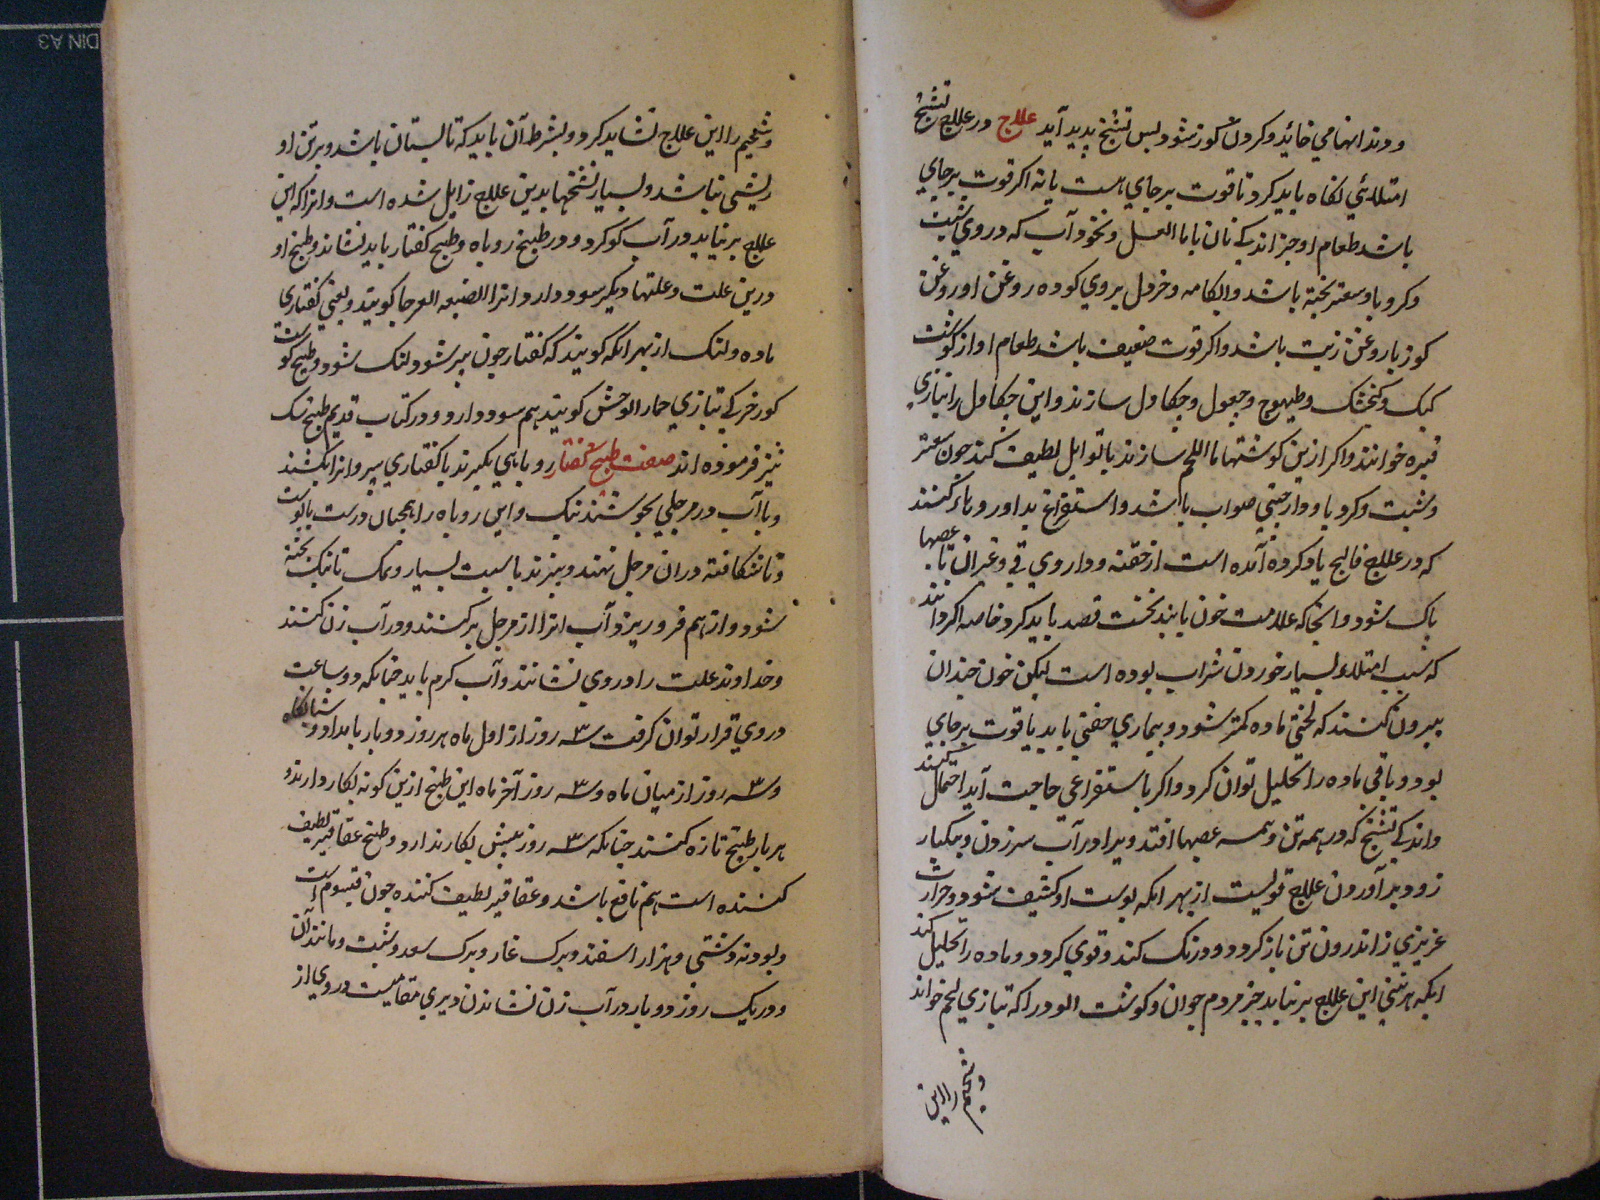 و دندانها می خائد و کردن کوز شود و پس تشنخ پدید آید علاج در علاج تشنخ
امتلائي نکاه باید کرد تا قوت بر جاي هست یا نه اکر قوت بر جاي
باشد طعام او جز اندکي نان با ما العسل و نخود آب که در وي شبت
و کرویا و سعتر پخته باشد و ابکامه و خردل بر وي کرده روغن او روغن
کوز یا روغن زیت باشد و اکر قوت ضعیف باشد طعام او از کوشت
کبک و کنجشک و طیهوج و جعول و چکاول سازند و این چکاول را بتازي
قنبره خوانند و اکر ازین کوشتها ما اللحم سازند با توابل لطیف کند چون سعتر
و شبت و کرویا و دارچیني صواب باشد و استفراغ بداروها کنند
که در علاج فالج یاد کرده آمده است از حقنه و داروي قي و غیر آن تا عصبها
پاک شود و انجا که علامت خون یابند نخست فصد باید کرد خاصه اکر دانند
که سبب امتلاء بسیار خوردن شراب بوده است لیکن خون چندان
بیرون کنند که لختي ماده کمتر شود و بیماري خفتي یابد یا قوت بر جاي
بود و باقي ماده را تحلیل توان کرد و اکر باستفراغي حاجت آید احتمال کند
و اندکي تشنخ که در همه تن و همه عصبها افتد ویرا در آب سرد زدن و بیکبار
زود برآوردن علاج قویست از بهر انکه پوست او کثیف شود و حرارت
غریزي ز اندرون تن باز کردد و درنک کند و قوي کردد و ماده را تحلیل کند
لیکن هر تني این علاج بر نتابد جز مردم جوان و کوشت الود را که بتازي لحیم خواند
و شحیم را این
و شحیم را این علاج نشاید کرد و بشرط آن باید که تابستان باشد و بر تن او
ریشي نباشد و بسیار تشنخها بدین علاج زایل شده است و انرا که این
علاج بر نتابد در آب کوکرد و در طبیخ روباه و طبیخ کفتار باید نشاند و طبیخ او
درین علت و علتها دیکر سود دارد و انرا الضبعه العرجا کویند و یعني کفتاري
ماده و لنک از بهر انکه کویند که کفتار چون پیر شود لنک شود و طبیخ کوشت
کورخر که بتازي حمار الوحش کویند هم سود دارد و در کتاب قدیم طبیخ سک
نیز فرموده اند صفت طبیخ کفتار روباهي بکیرند یا کفتاري پیر و انرا بکشند
و با آب در مرجلي بجوشند نیک و این روباه را همچنان درست با پوست
و ناشکافته در ان مرجل نهند و بپزند با شبت بسیار و نمک تا نیک پخته
شود و از هم فرو ریزد و آب انرا از مرجل بر کشند و در آب زن کنند
و خداوند علت را در وي نشانند و آب کرم باید چنانکه دو ساعت
در وي قرار توان کرفت سه ۳ روز از اول ماه هر روز دو بار بامداد و شبانکاه
و سه ۳ روز از میان ماه و سه ۳ روز آخر ماه این طبخ ازین کونه بکار دارند و
هر بار طبیخ تازه کنند چنانکه سه ۳ روز بیش بکار ندارد و طبیخ عقاقیر لطیف
کننده است هم نافع باشد و عقاقیر لطیف کننده چون قیسوم است
و پودنه دشتي و هزار اسفند و برک غار و برک سعد و شبت و مانند آن
و در یک روز دو بار در آب زن نشاندن و دیري مقامیست در وي از